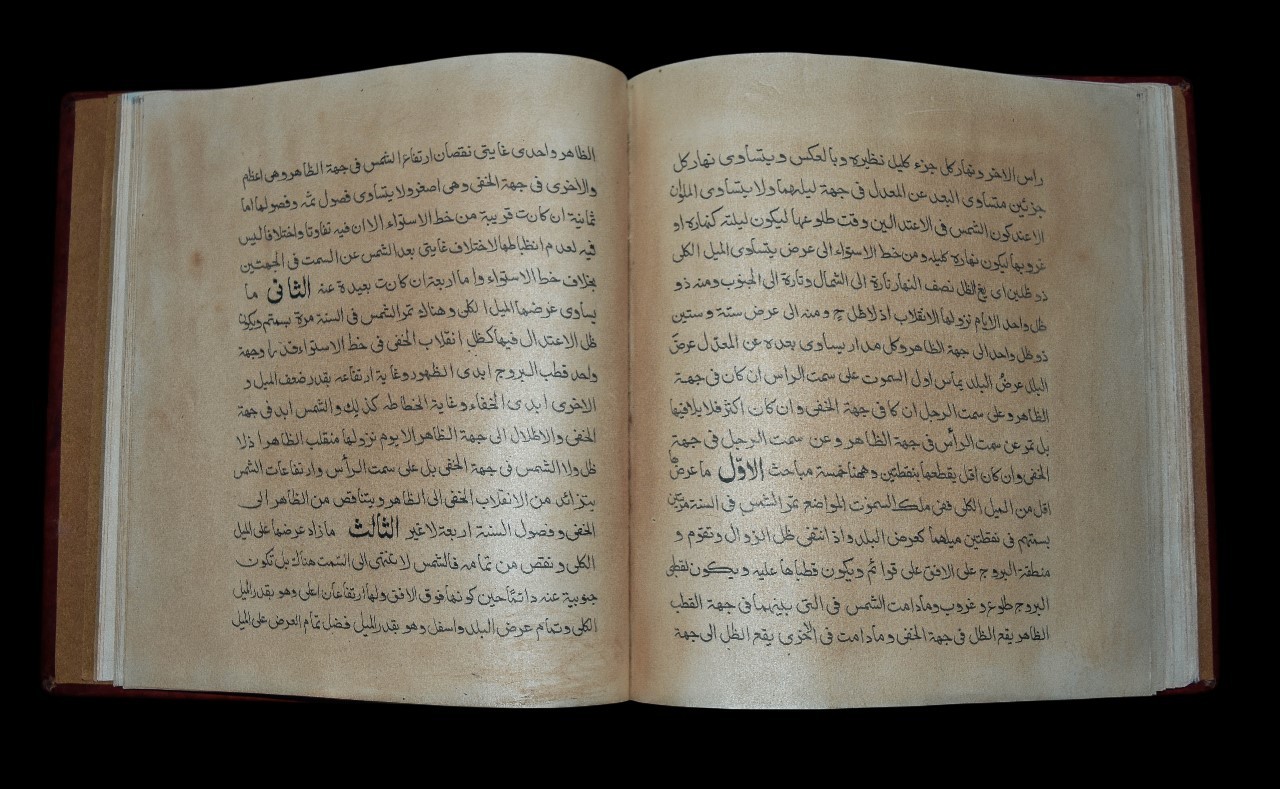 راس الاخر ونهار كل جزء كليل نظيره وبالعكس ويتساوى نهار كل
جزئين متساوى البعد عن المعدل فى جهة ليلهما ولا يتساوى الملوان
الا عند كون الشمس فى الاعتدالين وقت طلوعها ليكون ليلته كنهاره او
غروبها ليكون نهاره كليله ومن خط الاستواء الى عرض يتساوى الميل الكلى
ذو ظلين اى يقع الظل نصف النهار تارة الى الشمال وتارة الى الجنوب ومنه ذو
ظل واحد الا يوم نزولها الانقلاب اذ لا ظل ح ومنه الى عرض ستة وستين
ذو ظل واحد الى جهة الظاهر وكل مدار يساوى بعده عن المعدل عرض
البلد عرض البلد يماس اول السموت على سمت الراس ان كان فى جهة
الظاهر وعلى سمت الرجل ان كا فى جهة الخفى وان كان اكثر فلا يلاقيها
بل تمر عن سمت الرأس فى جهة الظاهر وعن سمت الرجل فى جهة
الخفى وان كان اقل يقطعها بنقطتين وههنا خمسة مباحث الاوّل ما عرضها
اقل من الميل الكلى ففى تلك المواضع تمر الشمس فى السنة مرتين
بسمتهم فى نقطتين ميلهما كعرض البلد واذ انتفى ظل الزوال وتقوم و
منطقة البروج على الافق على قوائم ويكون قطباها عليه ويكون لقطبى
البروج طلوع وغروب ومادامت الشمس فى التى بينهما فى جهة القطب
الظاهر يقع الظل فى جهة الخفى ومادامت فى الاخرى يقع الظل الى جهة
الظاهر واحدى غايتى نقصان ارتفاع الشمس فى جهة الظاهر وهى اعظم
والاخرى فى جهة الخفى وهى اصغر ولا يتساوى فصول ثمه وفصولها اما
ثمانية ان كانت قريبة من خط الاستواء الا ان فيه تفاوتا واختلافا ليس
فيه لعدم انطباقها لاختلاف غايتى بعد الشمس عن السمت فى الجهتين
بخلاف خط الاستواء واما اربعة ان كانت بعيدة عنه الثانى ما
يساوى عرضها الميل الكلى وهناك تمر الشمس فى السنة مرة بسمتهم ويكون
ظل الاعتدال فيها كظل انقلاب الخفى فى خط الاستواء قدرا وجهة
واحد قطب البروج ابدى الظهور وغاية ارتفاعه بقدر ضعف الميل و
الاخرى ابدى الخفاء وغاية انحطاطه كذلك والشمس ابد فى جهة
الخفى والاظلال الى جهة الظاهر الا يوم نزولها منقلب الظاهر اذ لا
ظل ولا الشمس فى جهة الخفى بل على سمت الرأس وارتفاعات الشمس
يتزائد من الانقلاب الخفى الى الظاهر ويتناقص من الظاهر الى
الخفى وفصول السنة اربعة لا غير الثالث ما زاد عرضها على الميل
الكلى ونقص من تمامه فالشمس لا تنتهى الى السمت هناك بل تكون
جنوبية عنه دائما حين كونها فوق الافق ولها ارتفاعان اعلى وهو بقدر الميل
الكلى وتمام عرض البلد واسفل وهو بقدر الميل فضل تمام العرض على الميل